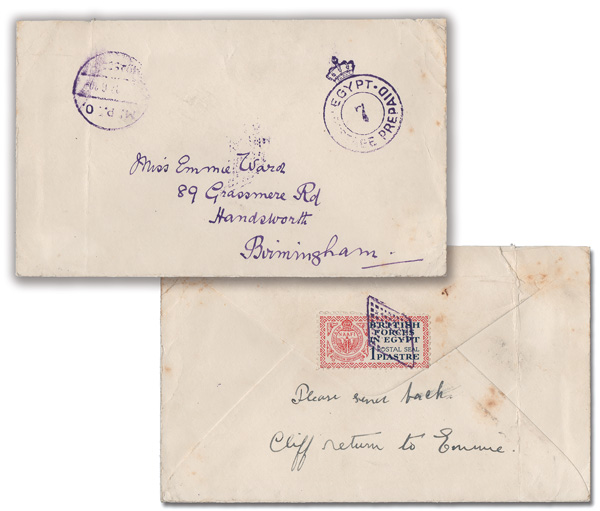 M.P.O.
EGYPT
PREPAID
7
Miss Emmie Ward
89 Grassmere Rd
Handsworth
Birmingham.
BRITISH
FORCES
IN EGYPT
POSTAL SEAL
1 PIASTRE
Please send back
Cliff return to Emmie.